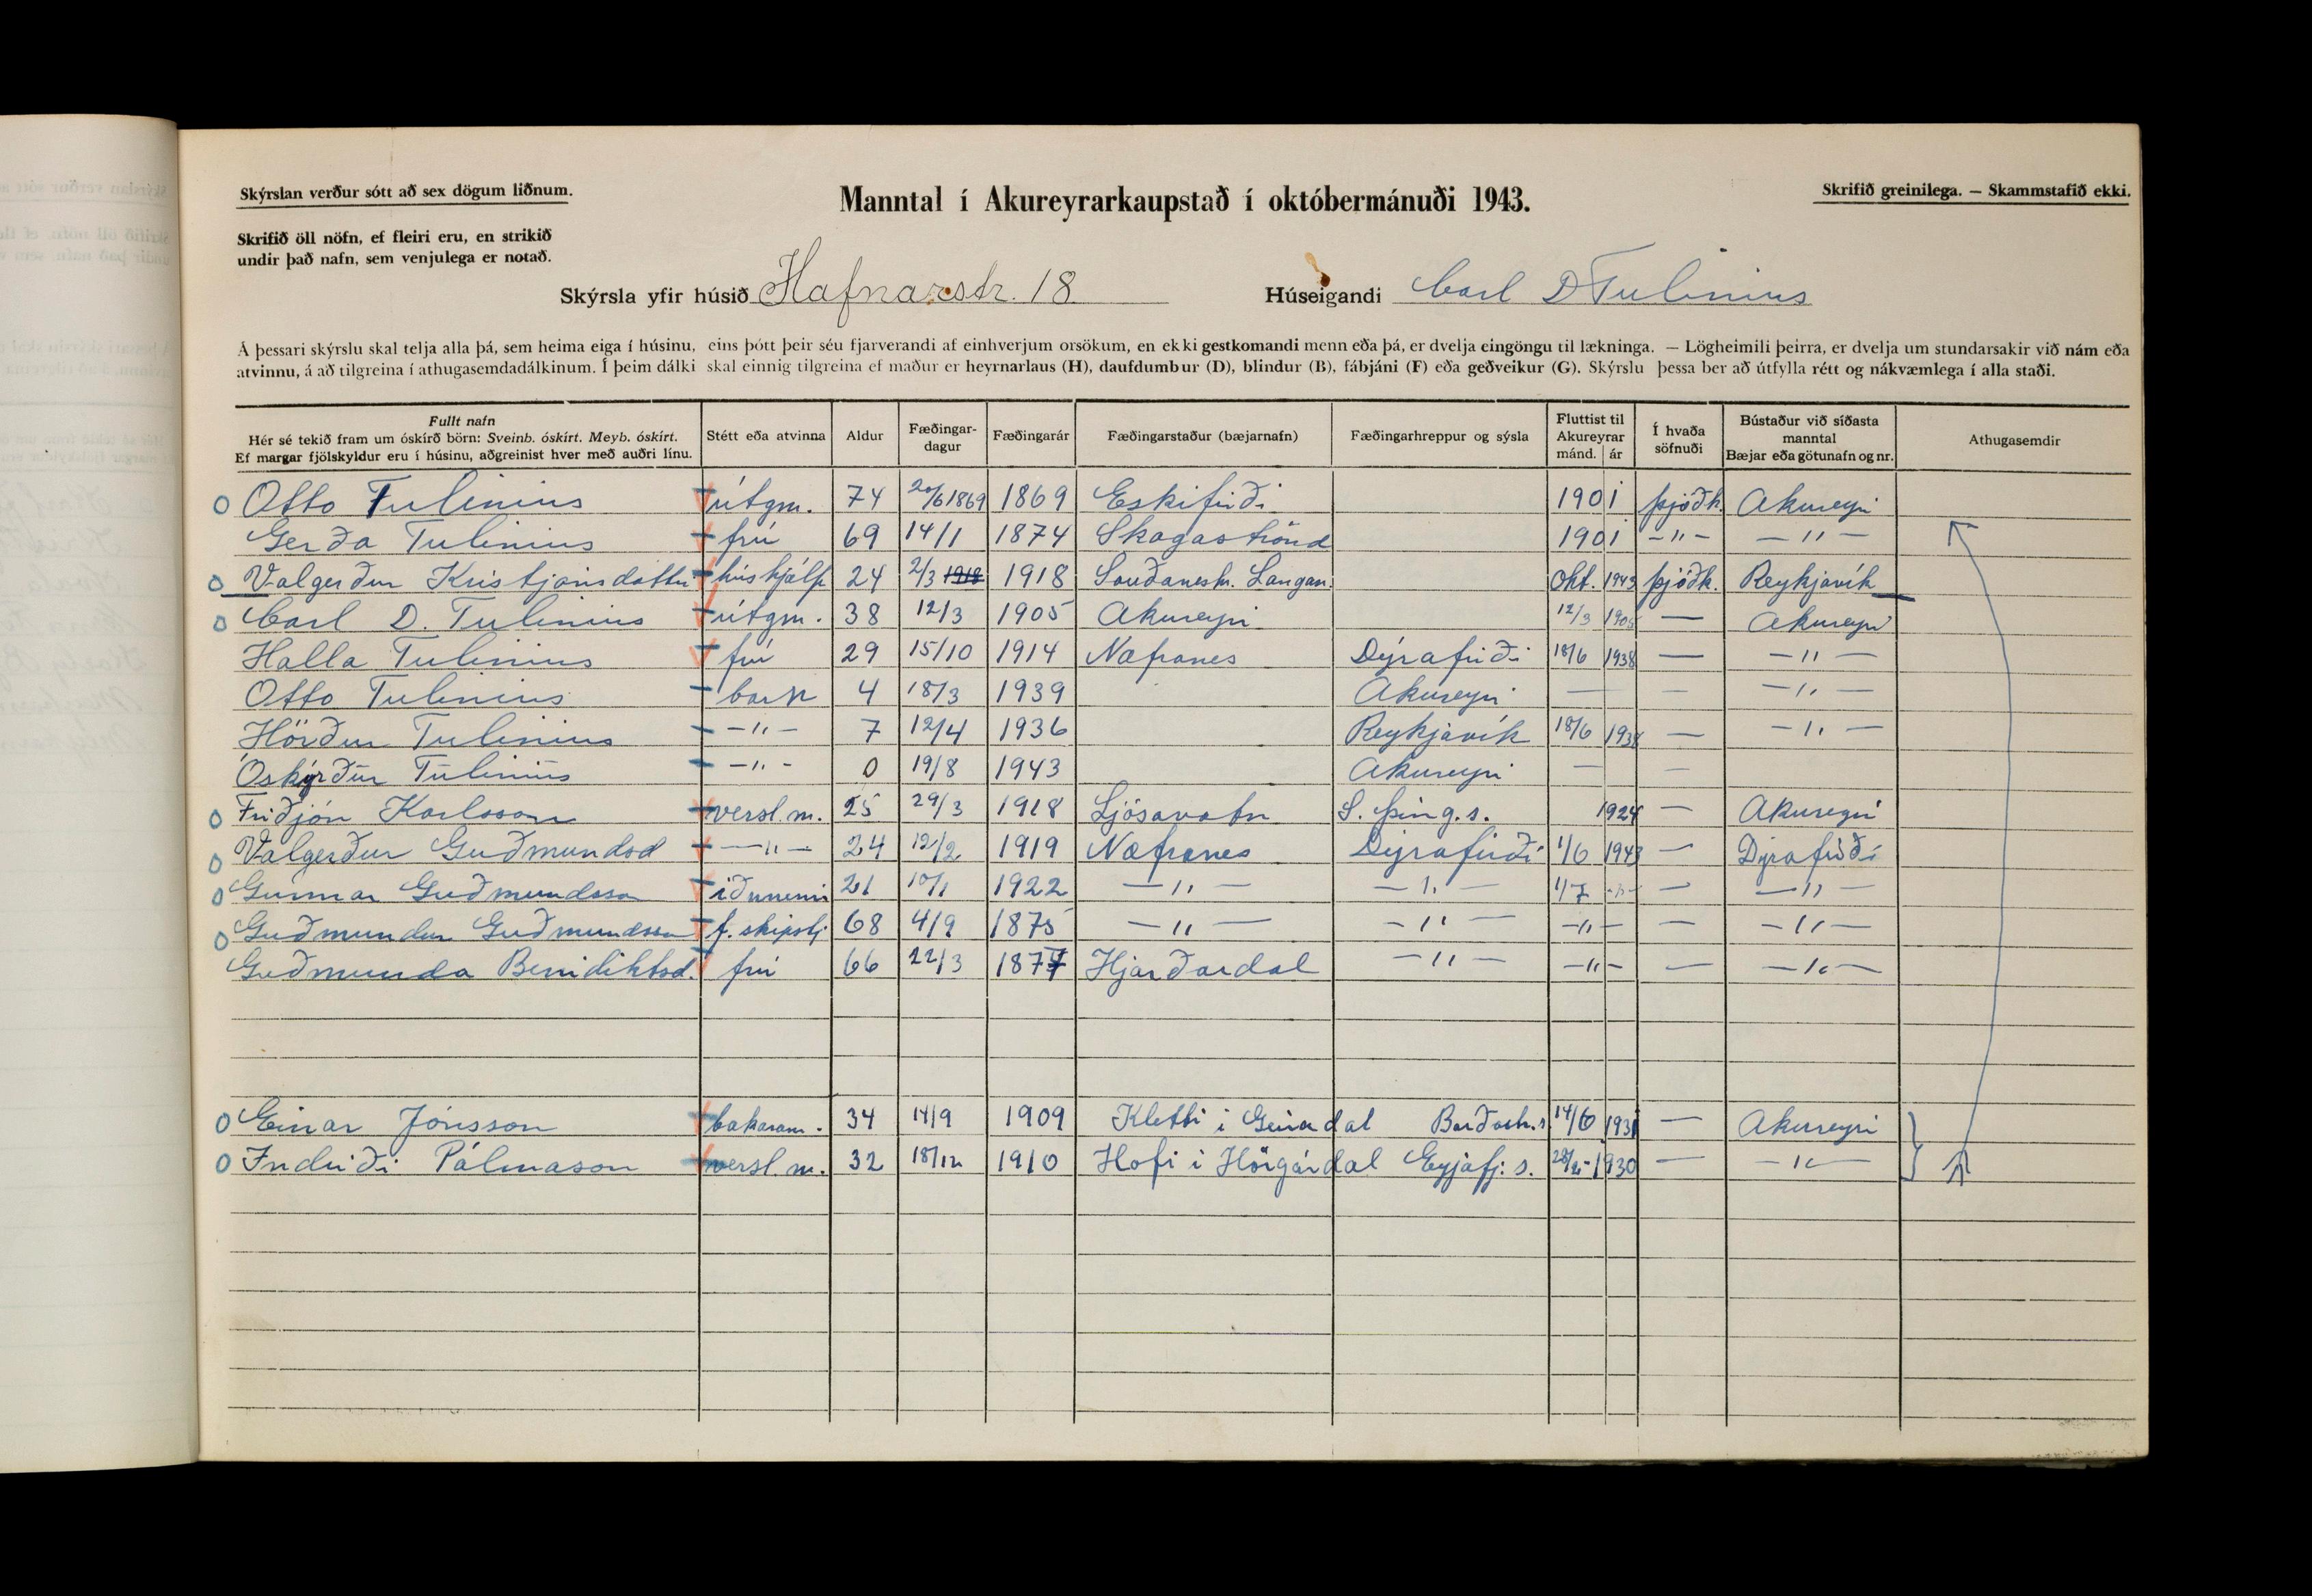 Skýrslan verður sótt að sex dögum liðnum.
Manntal í Akureyrarkaupstað í októbermánuði 1943.
Skrifið greinilega. — Skammstafið ekki.
Skrifið öll nöfn, ef fleiri eru, en strikið
undir það nafn, sem venjulega er notað.
Skýrsla yfir húsið Hafnarstr. 18 Húseigandi Carl D Tulinius
Á þessari skýrslu skal telja alla þá, sem heima eiga í húsinu, eins þótt þeir séu fjarverandi af einhverjum orsökum, en ekki gestkomandi menn eða þá, er dvelja eingöngu til lækninga. — Lögheimili þeirra, er dvelja um stundarsakir við nám eða
atvinnu, á að tilgreina í athugasemdadálkinum. Í þeim dálki skal einnig tilgreina ef maður er heyrnarlaus (H), daufdumbur (D), blindur (B), fábjáni (F) eða geðveikur (G). Skýrslu þessa ber að útfylla rétt og nákvæmlega í alla staði.
Fullt nafn
Hér sé tekið fram um óskírð börn: Sveinb. óskírt. Meyb. óskírt.
Ef margar fjölskyldur eru í húsinu, aðgreinist hver með auðri línu.
Stétt eða atvinna
Aldur
Fæðingar-
dagur
Fæðingarár
Fæðingarstaður (bæjarnafn)
Fæðingarhreppur og sýsla
Fluttist til
Akureyrar
mánd. | ár
Í hvaða
söfnuði
Bústaður við síðasta
manntal
Bæjar eða götunafn og nr.
Athugasemdir
Otto Tulinius útgm. 74 20/6 1869 1869 Eskifirði 1901 þjóðk. Akureyri
Gerða Tulinius frú 69 14/1 1874 Skagaströnd 1901 -"- -"-
Valgerður Kristjánsdóttir húshjálp 24 2/3 1918 1918 Sauðanesh. Langan. Okt. 1943 þjóðk. Reykjavík
Carl D. Tulinius útgm. 38 12/3 1905 Akureyri 12/3 1905 — Akureyri
Halla Tulinius frú 29 15/10 1914 Næfranes Dýrafirði 18/6 1938 — -"-
Otto Tulinius barn 4 18/3 1939 Akureyri — — -"-
Hörður Tulinius -"- 7 12/4 1936 Reykjavík 18/6 1938 — -"-
Óskýrður Tulinius -"- 0 19/8 1943 Akureyri — —
Friðjón Karlsson versl.m. 25 29/3 1918 Ljósavatn S. Þing.s. 1924 — Akureyri
Valgerður Guðmundsd -"- 24 12/2 1919 Næfranes Dýrafirði 1/6 1943 — Dýrafirði
Gunnar Guðmundsson iðnnemi 21 10/1 1922 -"- -"- 1/7 -"- — -"-
Guðmundur Guðmundsson f. skipstj 68 4/9 1875 -"- -"- -"- — -"-
Guðmunda Benidiktsd. frú 66 22/3 1877 Hjarðardal -"- -"- — -"-
Einar Jónsson bakaram. 34 14/9 1909 Kletti i Geiradal Barðastr.s 14/6 1931 — Akureyri
Indriði Pálmason versl.m. 32 18/12 1910 Hofi i Hörgárdal Eyjafj.s. 1930 — -"-